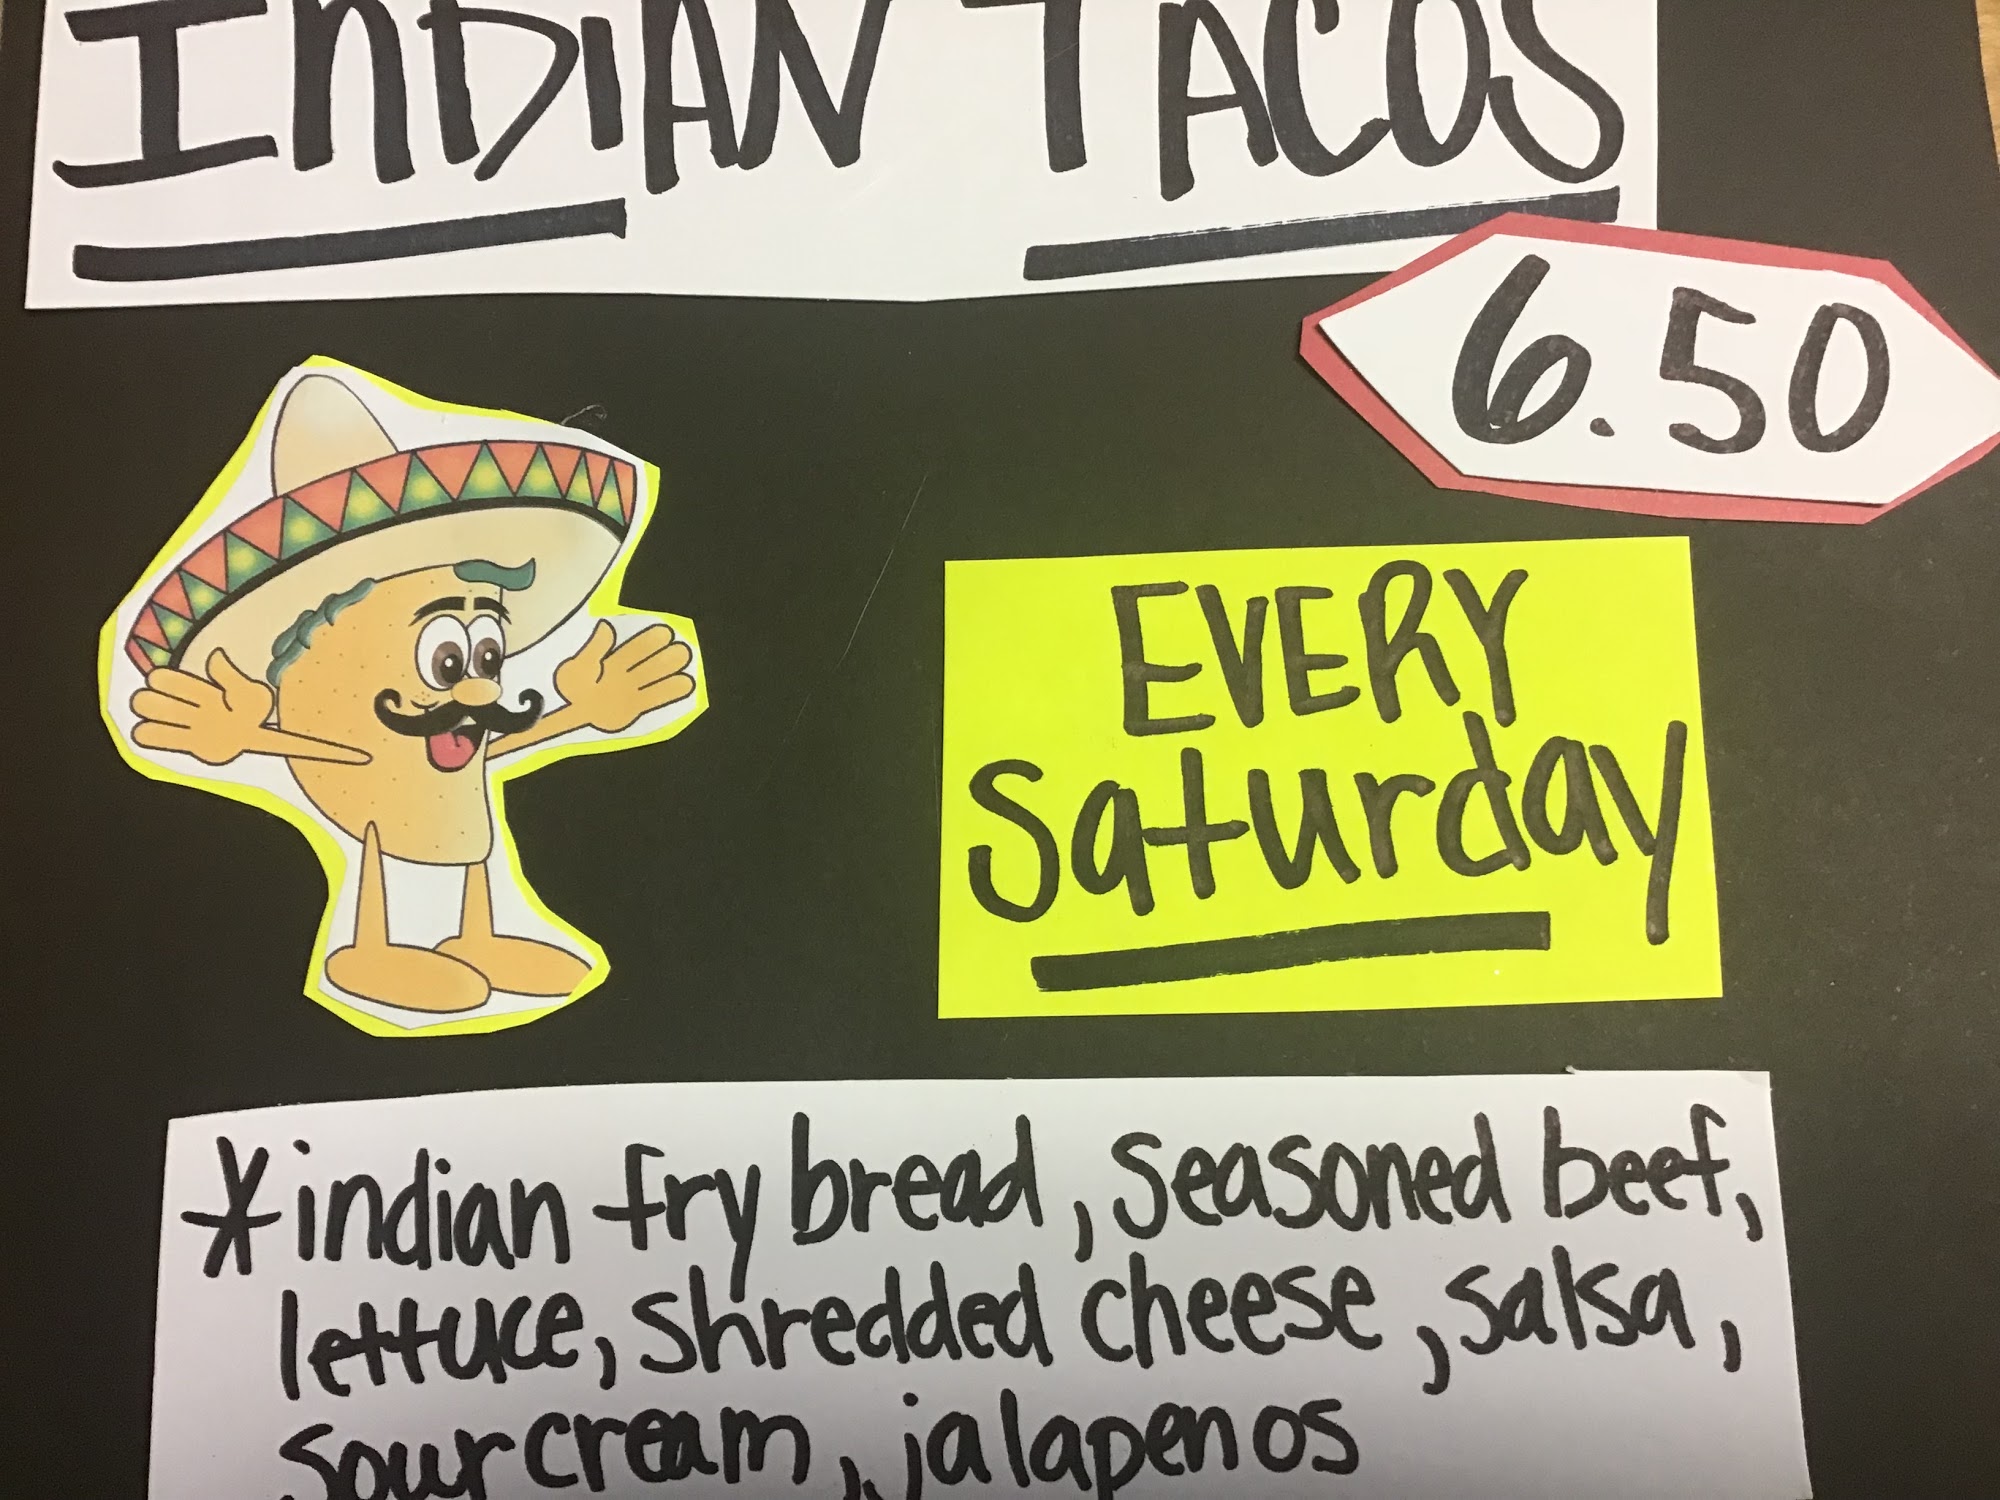 INDIAN TACOS
6.50
EVERY
Saturday
*indian fry bread, seasoned beef,
lettuce, shredded cheese, salsa,
sour cream, jalapenos